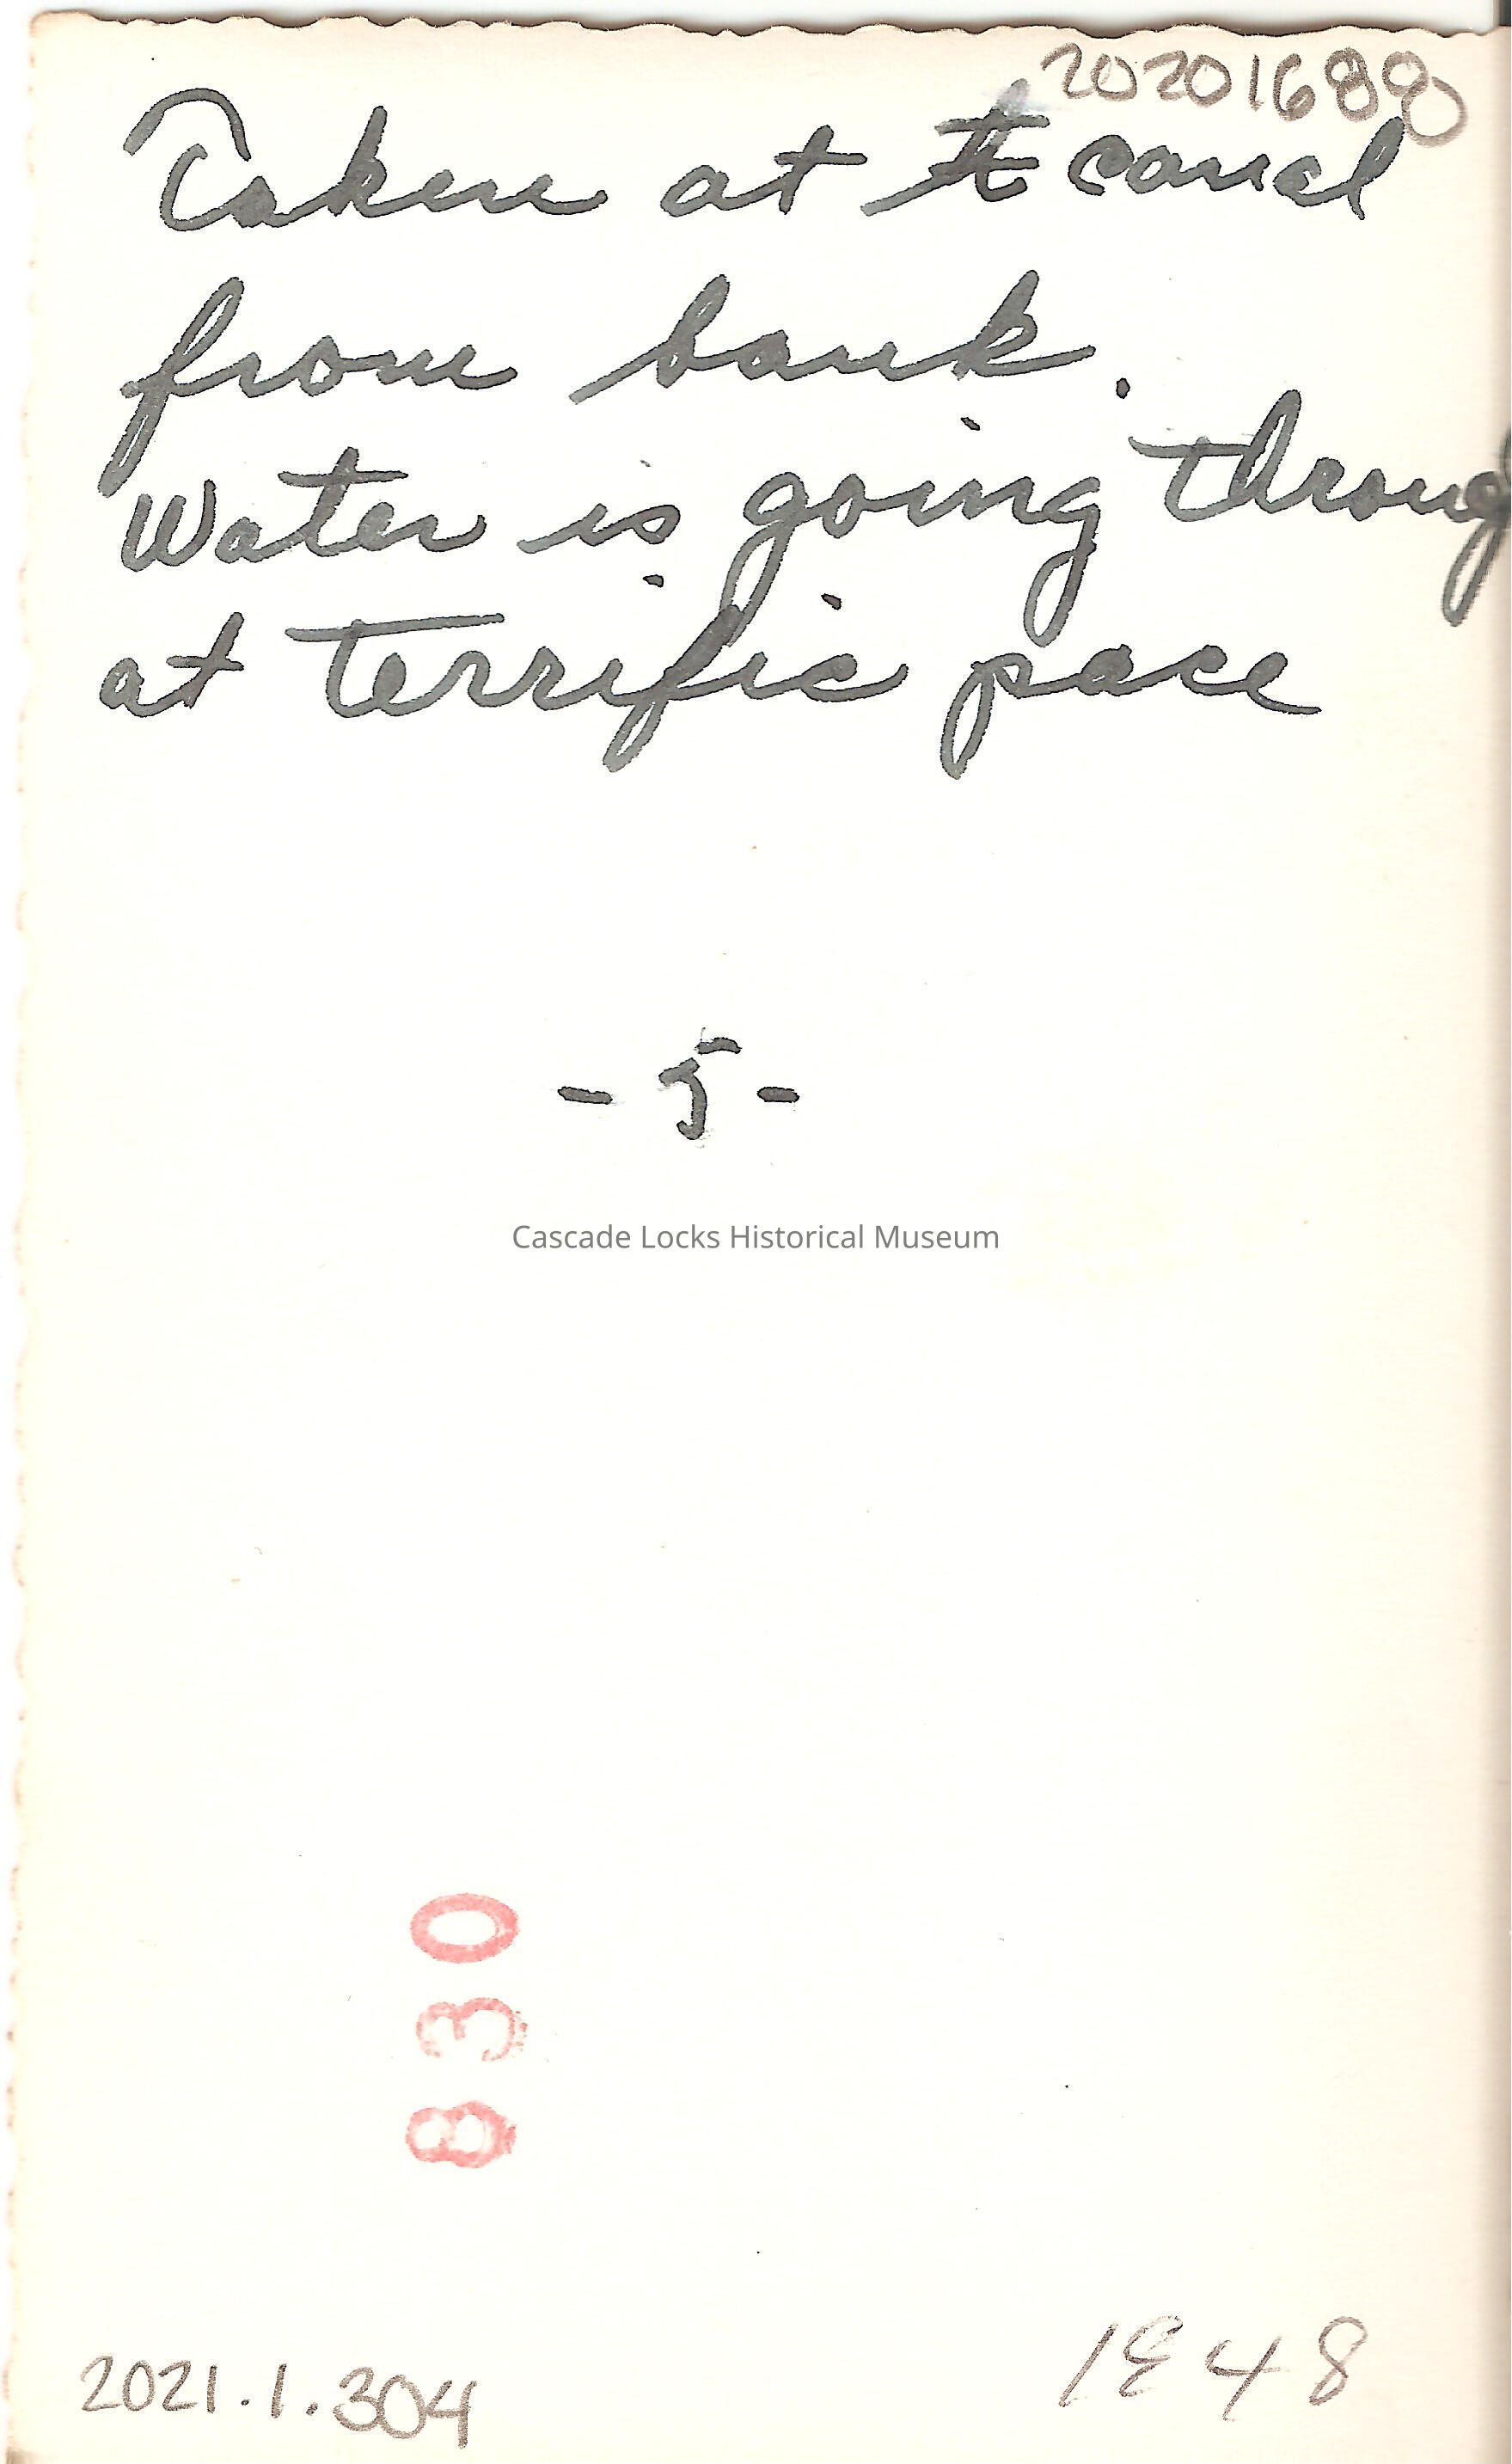 20201688
Taken at the canal
from bank.
Water is going throug
at terrific pace
- 5 -
Cascade Locks Historical Museum
830
2021.1.304
1948